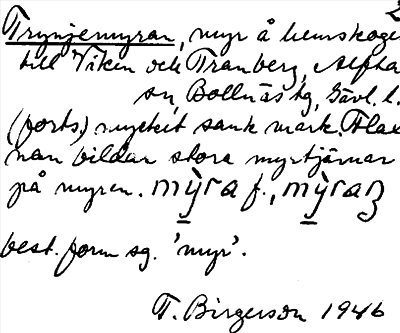 2
Trynjemyran, myr å hemskoge
till Viken och Tranberg, Alfta
sn, Bollnäs tg, Gävl. l.
(forts.) myckit sank mark. Flax
nan bildar stora myrtjärnar
på myren. mỳra f., mỳraꞃ
best. form sg. 'myr'.
T. Birgerson 1946